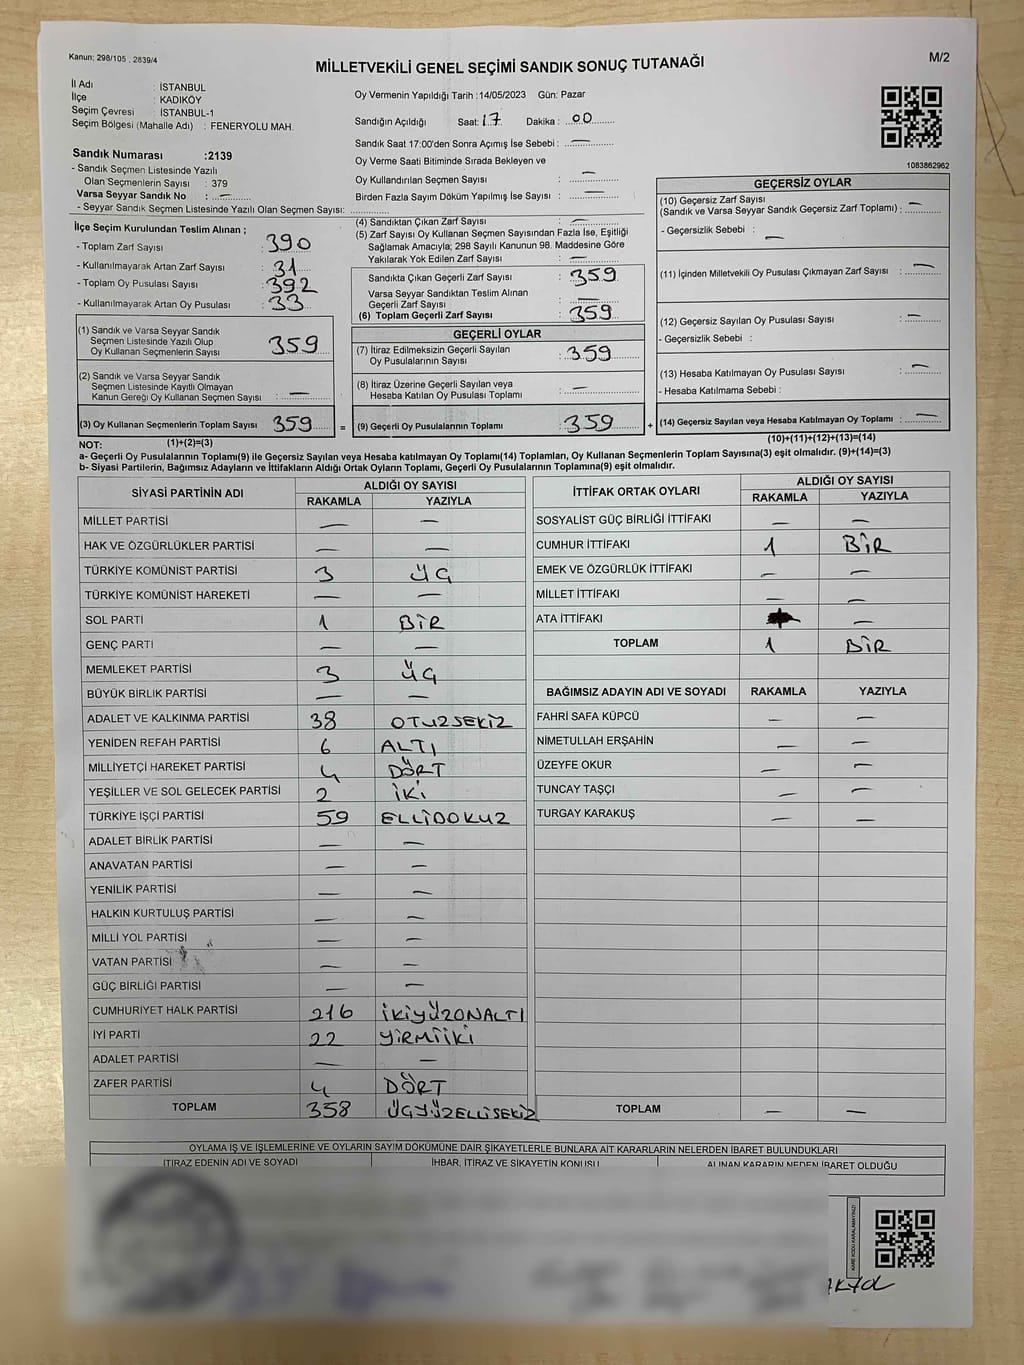 Kanun: 298/105 , 2839/4
M/2
MİLLETVEKİLİ GENEL SEÇİMİ SANDIK SONUÇ TUTANAĞI
İl Adı : İSTANBUL
İlçe : KADIKÖY
Seçim Çevresi : İSTANBUL-1
Seçim Bölgesi (Mahalle Adı) : FENERYOLU MAH.
Sandık Numarası :2139
- Sandık Seçmen Listesinde Yazılı
Olan Seçmenlerin Sayısı : 379
Varsa Seyyar Sandık No : —
- Seyyar Sandık Seçmen Listesinde Yazılı Olan Seçmen Sayısı:
Oy Vermenin Yapıldığı Tarih :14/05/2023 Gün: Pazar
Sandığın Açıldığı Saat: 17 Dakika : 00
Sandık Saat 17:00'den Sonra Açımış İse Sebebi : —
Oy Verme Saati Bitiminde Sırada Bekleyen ve
Oy Kullandırılan Seçmen Sayısı : —
Birden Fazla Sayım Döküm Yapılmış İse Sayısı : —
1083862962
İlçe Seçim Kurulundan Teslim Alınan ;
- Toplam Zarf Sayısı : 390
- Kullanılmayarak Artan Zarf Sayısı : 31
- Toplam Oy Pusulası Sayısı : 392
- Kullanılmayarak Artan Oy Pusulası : 33
(1) Sandık ve Varsa Seyyar Sandık
Seçmen Listesinde Yazılı Olup
Oy Kullanan Seçmenlerin Sayısı : 359
(2) Sandık ve Varsa Seyyar Sandık
Seçmen Listesinde Kayıtlı Olmayan
Kanun Gereği Oy Kullanan Seçmen Sayısı : —
(3) Oy Kullanan Seçmenlerin Toplam Sayısı : 359
(1)+(2)=(3)
(4) Sandıktan Çıkan Zarf Sayısı : —
(5) Zarf Sayısı Oy Kullanan Seçmen Sayısından Fazla İse, Eşitliği
Sağlamak Amacıyla; 298 Sayılı Kanunun 98. Maddesine Göre
Yakılarak Yok Edilen Zarf Sayısı : —
Sandıkta Çıkan Geçerli Zarf Sayısı : 359
Varsa Seyyar Sandıktan Teslim Alınan
Geçerli Zarf Sayısı : —
(6) Toplam Geçerli Zarf Sayısı : 359
GEÇERLİ OYLAR
(7) İtiraz Edilmeksizin Geçerli Sayılan
Oy Pusulalarının Sayısı : 359
(8) İtiraz Üzerine Geçerli Sayılan veya
Hesaba Katılan Oy Pusulası Toplamı : —
= (9) Geçerli Oy Pusulalarının Toplamı : 359 +
GEÇERSİZ OYLAR
(10) Geçersiz Zarf Sayısı
(Sandık ve Varsa Seyyar Sandık Geçersiz Zarf Toplamı) : —
- Geçersizlik Sebebi : —
(11) İçinden Milletvekili Oy Pusulası Çıkmayan Zarf Sayısı : —
(12) Geçersiz Sayılan Oy Pusulası Sayısı : —
- Geçersizlik Sebebi :
(13) Hesaba Katılmayan Oy Pusulası Sayısı : —
- Hesaba Katılmama Sebebi :
(14) Geçersiz Sayılan veya Hesaba Katılmayan Oy Toplamı : —
(10)+(11)+(12)+(13)=(14)
NOT:
a- Geçerli Oy Pusulalarının Toplamı(9) ile Geçersiz Sayılan veya Hesaba katılmayan Oy Toplamı(14) Toplamları, Oy Kullanan Seçmenlerin Toplam Sayısına(3) eşit olmalıdır. (9)+(14)=(3)
b- Siyasi Partilerin, Bağımsız Adayların ve İttifakların Aldığı Ortak Oyların Toplamı, Geçerli Oy Pusulalarının Toplamına(9) eşit olmalıdır.
SİYASİ PARTİNİN ADI ALDIĞI OY SAYISI
RAKAMLA YAZIYLA
MİLLET PARTİSİ — —
HAK VE ÖZGÜRLÜKLER PARTİSİ — —
TÜRKİYE KOMÜNİST PARTİSİ 3 ÜÇ
TÜRKİYE KOMÜNİST HAREKETİ — —
SOL PARTİ 1 BİR
GENÇ PARTİ — —
MEMLEKET PARTİSİ 3 ÜÇ
BÜYÜK BİRLİK PARTİSİ — —
ADALET VE KALKINMA PARTİSİ 38 OTUZSEKİZ
YENİDEN REFAH PARTİSİ 6 ALTI
MİLLİYETÇİ HAREKET PARTİSİ 4 DÖRT
YEŞİLLER VE SOL GELECEK PARTİSİ 2 İKİ
TÜRKİYE İŞÇİ PARTİSİ 59 ELLİDOKUZ
ADALET BİRLİK PARTİSİ — —
ANAVATAN PARTİSİ — —
YENİLİK PARTİSİ — —
HALKIN KURTULUŞ PARTİSİ — —
MİLLİ YOL PARTİSİ — —
VATAN PARTİSİ — —
GÜÇ BİRLİĞİ PARTİSİ — —
CUMHURİYET HALK PARTİSİ 216 İKİYÜZONALTI
İYİ PARTİ 22 YİRMİİKİ
ADALET PARTİSİ — —
ZAFER PARTİSİ 4 DÖRT
TOPLAM 358 ÜÇYÜZELLİSEKİZ
İTTİFAK ORTAK OYLARI ALDIĞI OY SAYISI
RAKAMLA YAZIYLA
SOSYALİST GÜÇ BİRLİĞİ İTTİFAKI — —
CUMHUR İTTİFAKI 1 BİR
EMEK VE ÖZGÜRLÜK İTTİFAKI — —
MİLLET İTTİFAKI — —
ATA İTTİFAKI —
TOPLAM 1 BİR
BAĞIMSIZ ADAYIN ADI VE SOYADI RAKAMLA YAZIYLA
FAHRİ SAFA KÜPCÜ — —
NİMETULLAH ERŞAHİN — —
ÜZEYFE OKUR — —
TUNCAY TAŞÇI — —
TURGAY KARAKUŞ — —
TOPLAM — —
OYLAMA İŞ VE İŞLEMLERİNE VE OYLARIN SAYIM DÖKÜMÜNE DAİR ŞİKAYETLERLE BUNLARA AİT KARARLARIN NELERDEN İBARET BULUNDUKLARI
İTİRAZ EDENİN ADI VE SOYADI İHBAR, İTİRAZ VE ŞİKAYETİN KONUSU ALINAN KARARIN NEDEN İBARET OLDUĞU
KARE KODU KARALAMAYINIZ!